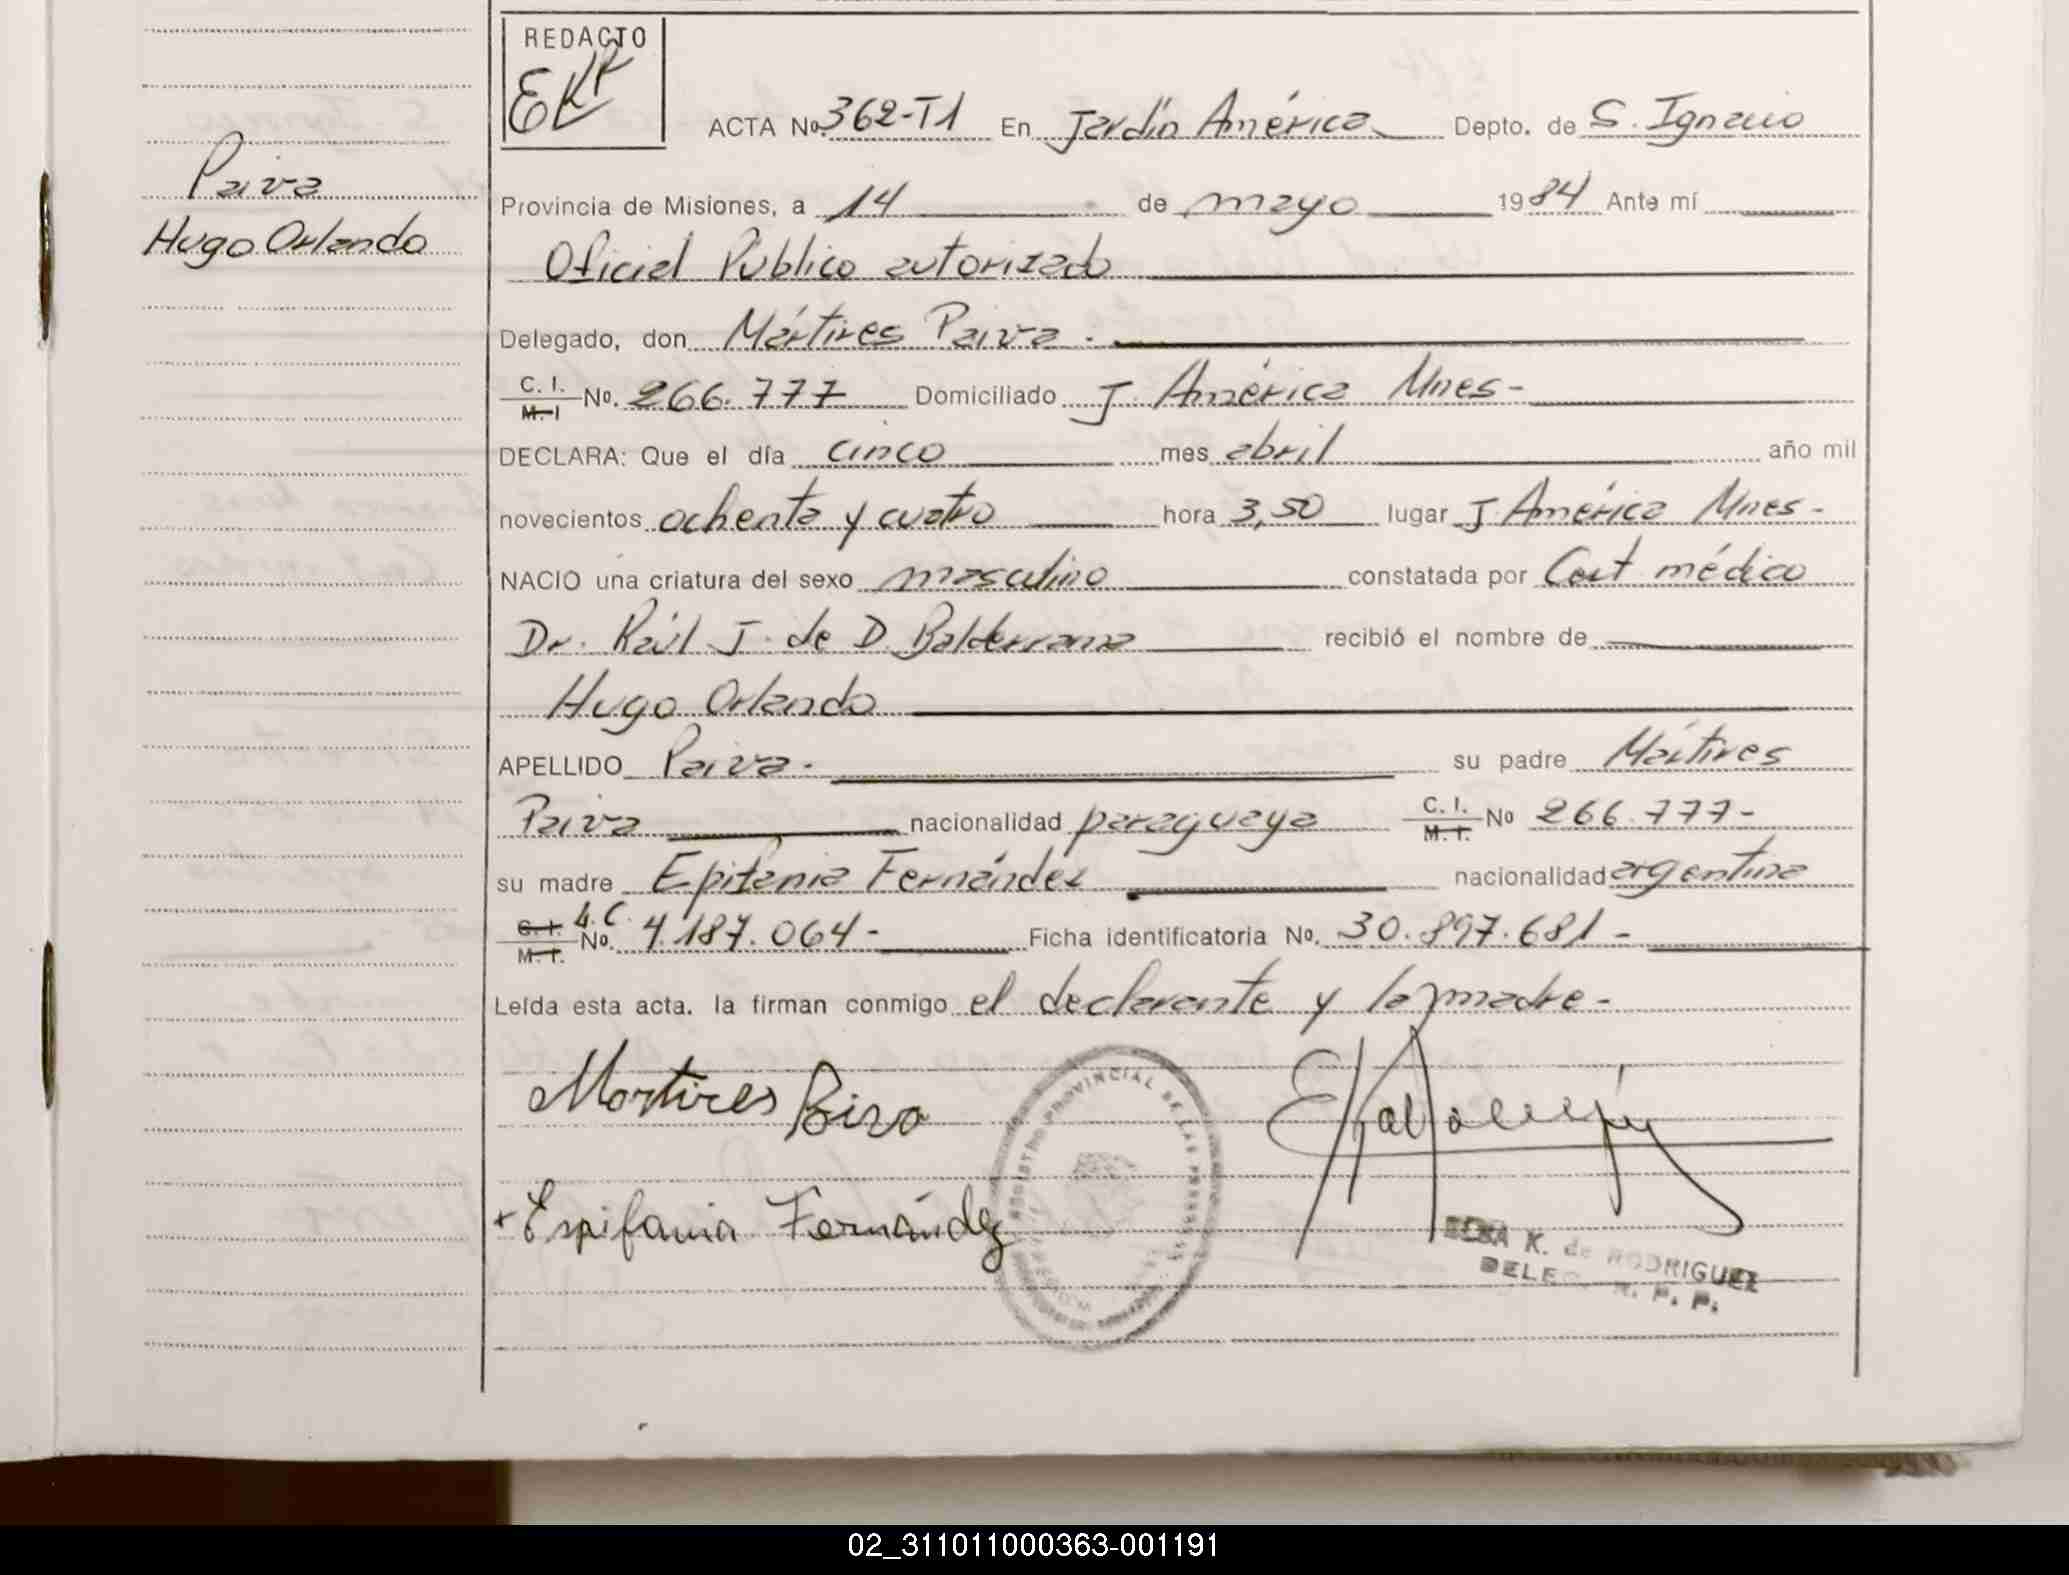 REDACTO
EKR
ACTA No. 362-T1 En Jardín América Depto. de S. Ignacio
Paiva
Hugo Orlando
Provincia de Misiones, a 14 de mayo 1984 Ante mí
Oficial Público autorizado
Delegado, don Mártires Paiva.
C. I. M. I No. 266.777 Domiciliado J. América Mnes-
DECLARA: Que el día cinco mes abril año mil
novecientos ochenta y cuatro hora 3,50 lugar J América Mnes-
NACIO una criatura del sexo masculino constatada por Cert médico
Dr. Raúl J. de D. Balderrama recibió el nombre de
Hugo Orlando
APELLIDO Paiva. su padre Mártires
Paiva nacionalidad paraguaya C. I. M. I. No 266.777-
su madre Epifania Fernández nacionalidad argentina
C. I. M. I. L.C. No. 4.187.064- Ficha identificatoria No. 30.897.681-
Leída esta acta. la firman conmigo el declarante y la madre-
Martires Paiva
+ Espifania Fernández
REGISTRO PROVINCIAL DE LAS PERSONAS
ELSA K. de RODRIGUEZ
DELEG. R. P. P.
02_311011000363-001191